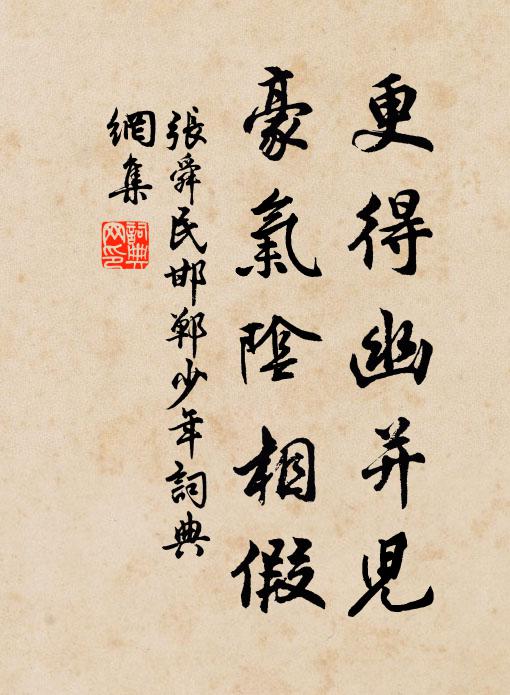 更得幽并兒
豪氣陰相假
張舜民邯鄲少年詞典
網集
詞典
网印